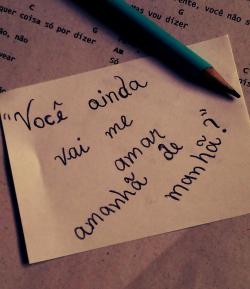 C
quer coisa só por dizer
ão, não
ever
C
vas vou dizer
AM
Só
ente, você não s
"Você ainda
vai me
amar
amanhã de
manhã?"